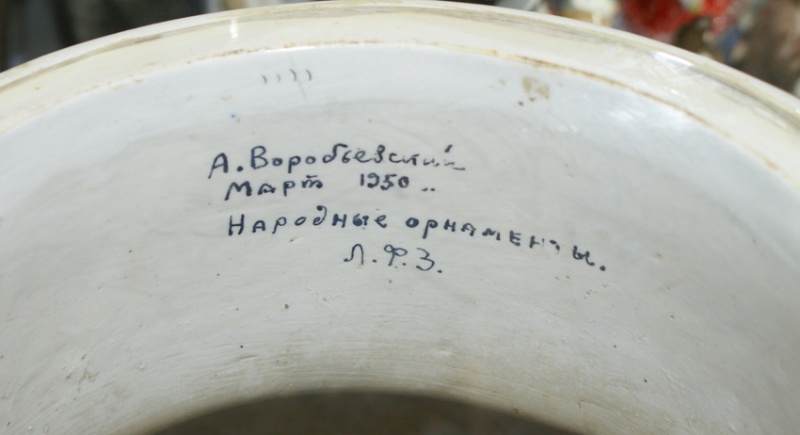 А. Воробьевский
Март 1950..
Народные орнаменты.
Л.Ф.З.